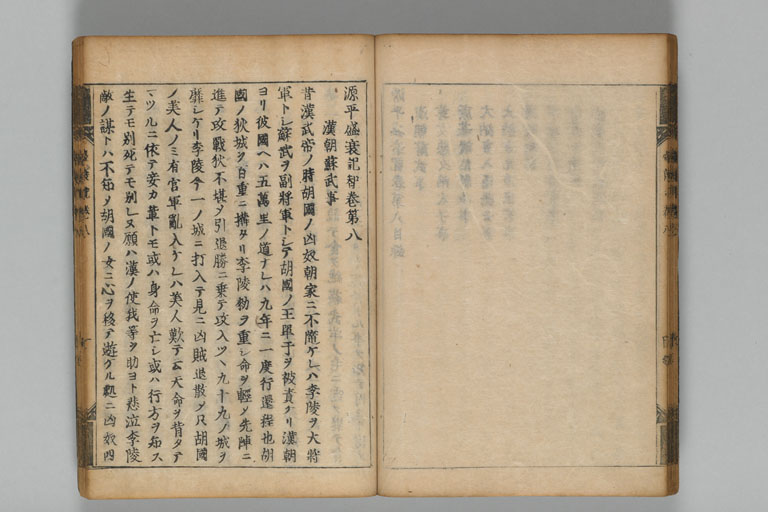 源平盛衰記智巻第八
漢朝蘇武事
昔漢武帝ノ時胡國ノ凶奴朝家ニ不隨ケレハ李陵ヲ大將
軍トシ蘇武ヲ副將軍トシテ胡國ノ王單于ヲ被責ケリ漢朝
ヨリ彼國ヘハ五萬里ノ道ナレハ九年ニ一度行還程也胡
國ノ狄城ヲ百重ニ構タリ李陵勅ヲ重シ命ヲ輕メ先陣ニ
進テ攻戰狄不堪ヲ引退勝ニ乗テ攻入ツヽ九十九ノ城ヲ
靡シケリ李陵今一ノ城ニ打入テ見ニ凶賊退散メ只胡國
ノ美人ノミ有官軍亂入ケレハ美人歎テ云天命ヲ背タテ
マツルニ依テ妾カ輩トモ或ハ身命ヲ亡シ或ハ行方ヲ知ス
生テモ別死テモ別レヌ願ハ漢ノ使我等ヲ助ヨト悲泣李陵
敵ノ謀トハ不知メ胡國ノ女ニ心ヲ移テ遊ケル處ニ凶奴四